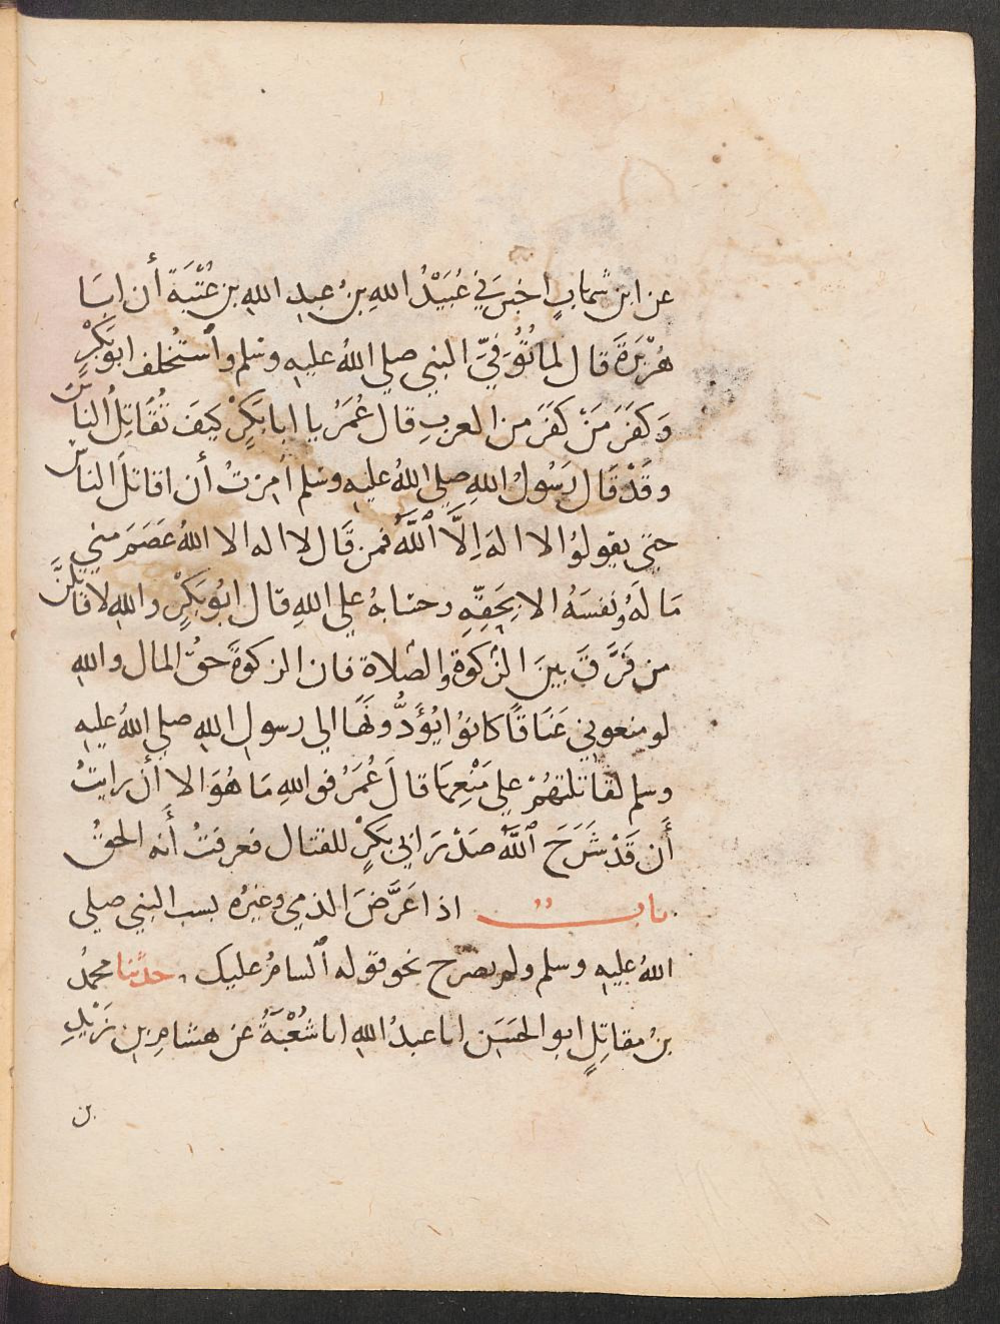 عن ابن شهابٍ اخبرَني عُبَيْدُ اللهِ بنُ عبدِ اللهِ بنِ عُتْبَةَ أن ابَا
هُرَيْرَةَ قال لما تُوُفِّيَ النبي صلي اللهُ عليهِ وسَلم واسْتُخلف ابو بَكْرٍ
وَكفَرَ مَنْ كَفَرَ من العربِ قال عُمَرُ يا ابا بَكْرٍ كيفَ تُقَاتِلُ الناسَ
وقَدْ قَال رَسُولُ اللهِ صلي اللهُ عليهِ وسَلم اُمِرْتُ أن اقاتلَ الناسَ
حتي يقولوُا لا الهَ اِلَّا اللَّهُ فمن قَال لا اله الا اللهُ عَصَمَ مني
مَالَهُ ونفسَهُ الا بِحَقِّهِ وحسَابهُ علي اللهِ قال ابُو بَكْرٍ واللهِ لاقاتلنَّ
من فَرَّقَ بينَ الزكوةِ والصَّلاة فان الزكوةَ حقُّ المال واللهِ
لو منعوني عَنَاقًا كانوُا يُؤَدُّونَهَا الي رسولِ اللهِ صلي اللهُ عليهِ
وسلم لقاتلتهُمْ علي مَنْعِهَا قالَ عُمَرُ فواللهِ مَا هُوَ الا أن رايتُ
أَن قَدْ شَرَحَ اللَّهُ صَدْرَ ابي بَكْرٍ للقتال فعرفتُ أَنه الحقُّ
باب اذا عَرَّضَ الذمي وغيرُه بسب النبي صلي
اللهُ عليهِ وسلم ولم يصرح نحو قوله السامُ عليك حدثنا محمدُ
بنُ مقاتِلٍ ابو الحَسَنِ انا عبدُ اللهِ انا شُعْبَةُ عن هشامِ بن زَيْدِ
بن